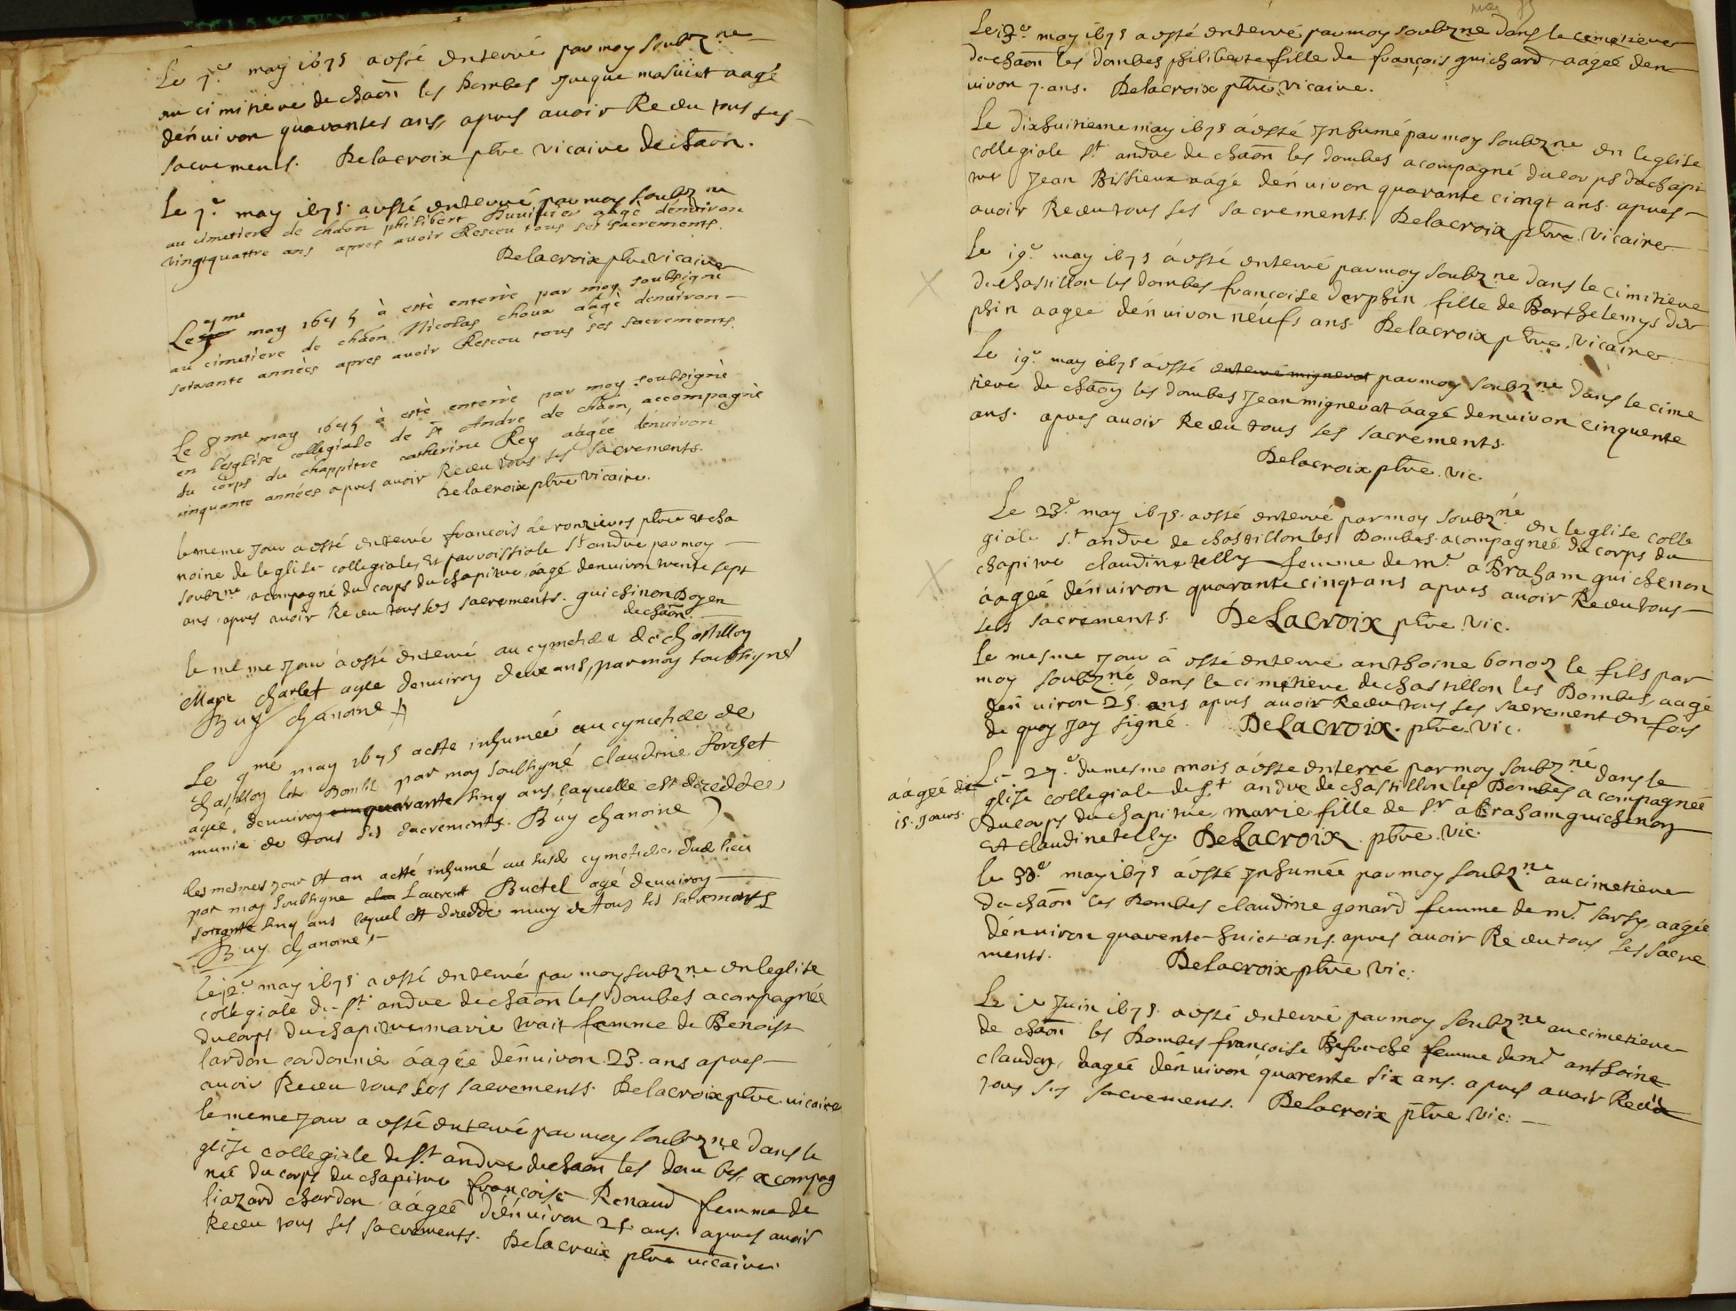 Le 7.e may 1675 a esté enterré par moy soubz.né
au cimitiere de chaon les dombes Jacque masuiet aagé
dénuiron quarantes ans, apres auoir Receu tous ses
sacrements. Delacroix pbre vicaire de chaon.
Le 7.e may 1675. a esté enterré par moy soubz.né
au cimetiere de chaon philibert aagè dénuiron
vingtquattre ans apres auoir Resceu tous ses sacrements.
Delacroix pbre vicaire
Le 7me may 1675 à estè enterrè par moy soubsignè
au cimetiere de chaon Nicolas choux aâgè denuiron
soixante annèes apres auoir Resceu tous ses sacrements.
Le 8me may 1675 à estè enterrè par moy soubsignè
en l'esglise collegiale de St Andre de chaon, accompagnè
du corps du chappitre catherine Rey aâgèe denuiron
cinquante annèes apres auoir Receu tous ses sacrements.
Delacroix pbre vicaire.
le meme jour a esté enterré francois de ronzieres pbre et cha
noine de leglise collegiale, et parroissiale St andre par moy
soubz.né acompagné du corps du chapitre, aagé denuiron trente sept
ans, apres auoir Receu tous ses sacrements. guichenon Doyen
de chaon.
le méme jour a esté enterré au cymetiere de chastillon
Marc charlet agee denuiron deux ans, par moy soubsigné
Buy chanoine
Le 9me may 1675 a este inhumeé au cymetiere de
chastillon les Dombes par moy soubsigné claudine forchet
agee, denuiron quarante sinq ans, laquelle est decedée
munie de tous ses sacrements. Buy chanoine
les mesmes jour et an a esté inhumé au susd cymetiere dud lieu
par moy soubsigne Laurent Buctel agé denuiron
soixante sinq ans lequel est decedé muny de tous ses sacrements
Buy chanoine
Le 12.e may 1675 a esté enterré par moy soubz.né en leglise
collegiale de St. andre de chaon les dombes acompagnée
du corps du chapitre marie trait femme de Benoist
lardon cordonnie aágée dénuiron 23. ans apres
auoir Receu tous ses sacrements. Delacroix pbre vicaire
le meme jour a esté enterré par moy soubz.né dans le
glise collegiale de St. andre de chaon les dombes, acompag
neé du corps du chapitre françoise Renaud femme de
liazard chardon aágeé dénuiron 25. ans. apres auoir
Receu tous ses sacrements. Delacroix pbre vicaire.
may 75
Le 13.e may 1675 a esté enterré par moy soubzne dans le cemetiere
de chaon les dombes philiberte fille de françois guichard, aageé den
uiron 7. ans. Delacroix pbre vicaire.
Le dixhuitieme may 1675 a esté Inhumé par moy soubz.né en leglise
collegiale St andre de chaon les dombes acompagné du corps du chapi
tre Jean Bissieux aágé dénuiron quarante cinqt ans. apres
auoir Receu tous ses sacrements, Delacroix pbre. vicaire
Le 19.e may 1675 a esté enterré par moy soubz.né dans le cimitiere
de chastillon les dombes françoise derphin fille de Barthelemys der
phin aageé dénuiron neufs ans. Delacroix pbre. vicaire
Le 19.e may 1675 a esté enterré mignerat par moy soubz.né dans le cime
tiere de chaon les dombes Jean mignerat aagé denuiron cinquente
ans. apres auoir Receu tous ses sacrements.
Delacroix pbre. vic.
Le 23.e may 1675. a esté enterré par moy soubz.né en leglise colle
giale St. andre de chastillon les Dombes. acompagneé du corps du
chapitre claudine telly femme de mr. aBraham guichenon
aágeé dénuiron quarante cinqt ans apres auoir Receu tous
ses sacrements. DeLaCROIX pbre. vic.
Le mesme Jour à esté enterré anthoine bonoz le fils par
moy soubz.né, dans le cimetiere de chastillon les Dombes, aagé
dénuiron 25. ans apres auoir Receu tous ses sacrement en foy
de quoy Jay signé. DeLaCROIX. pbre. vic.
Le 27.e du mesme mois a este enterré par moy soubz.né dans le
glise collegiale de St andre de chastillon les Dombes acompagnéé
du corps du chapitre, marie fille de Sr. aBraham guichenon
et claudine telly. DeLaCROIX. pbre. vic.
aágeé de
15. Jours.
Le 30.e may 1675 a esté Inhumée par moy soubz.ne au cimetiere
de chaon les Dombes claudine gonard femme de mr. sarsy, aágée
dénuiron quarente huict ans. apres auoir Receu tous ses sacre
ments. Delacroix pbre vic.
Le 1.e Juin 1675. a esté enterré par moy soubz.né au cimetiere
de chaon les Dombes françoise femme de mr anthoine
claudon, aageé dénuiron quarente six ans. apres auoir Receu
tous ses sacrements. Delacroix pbre. vic.